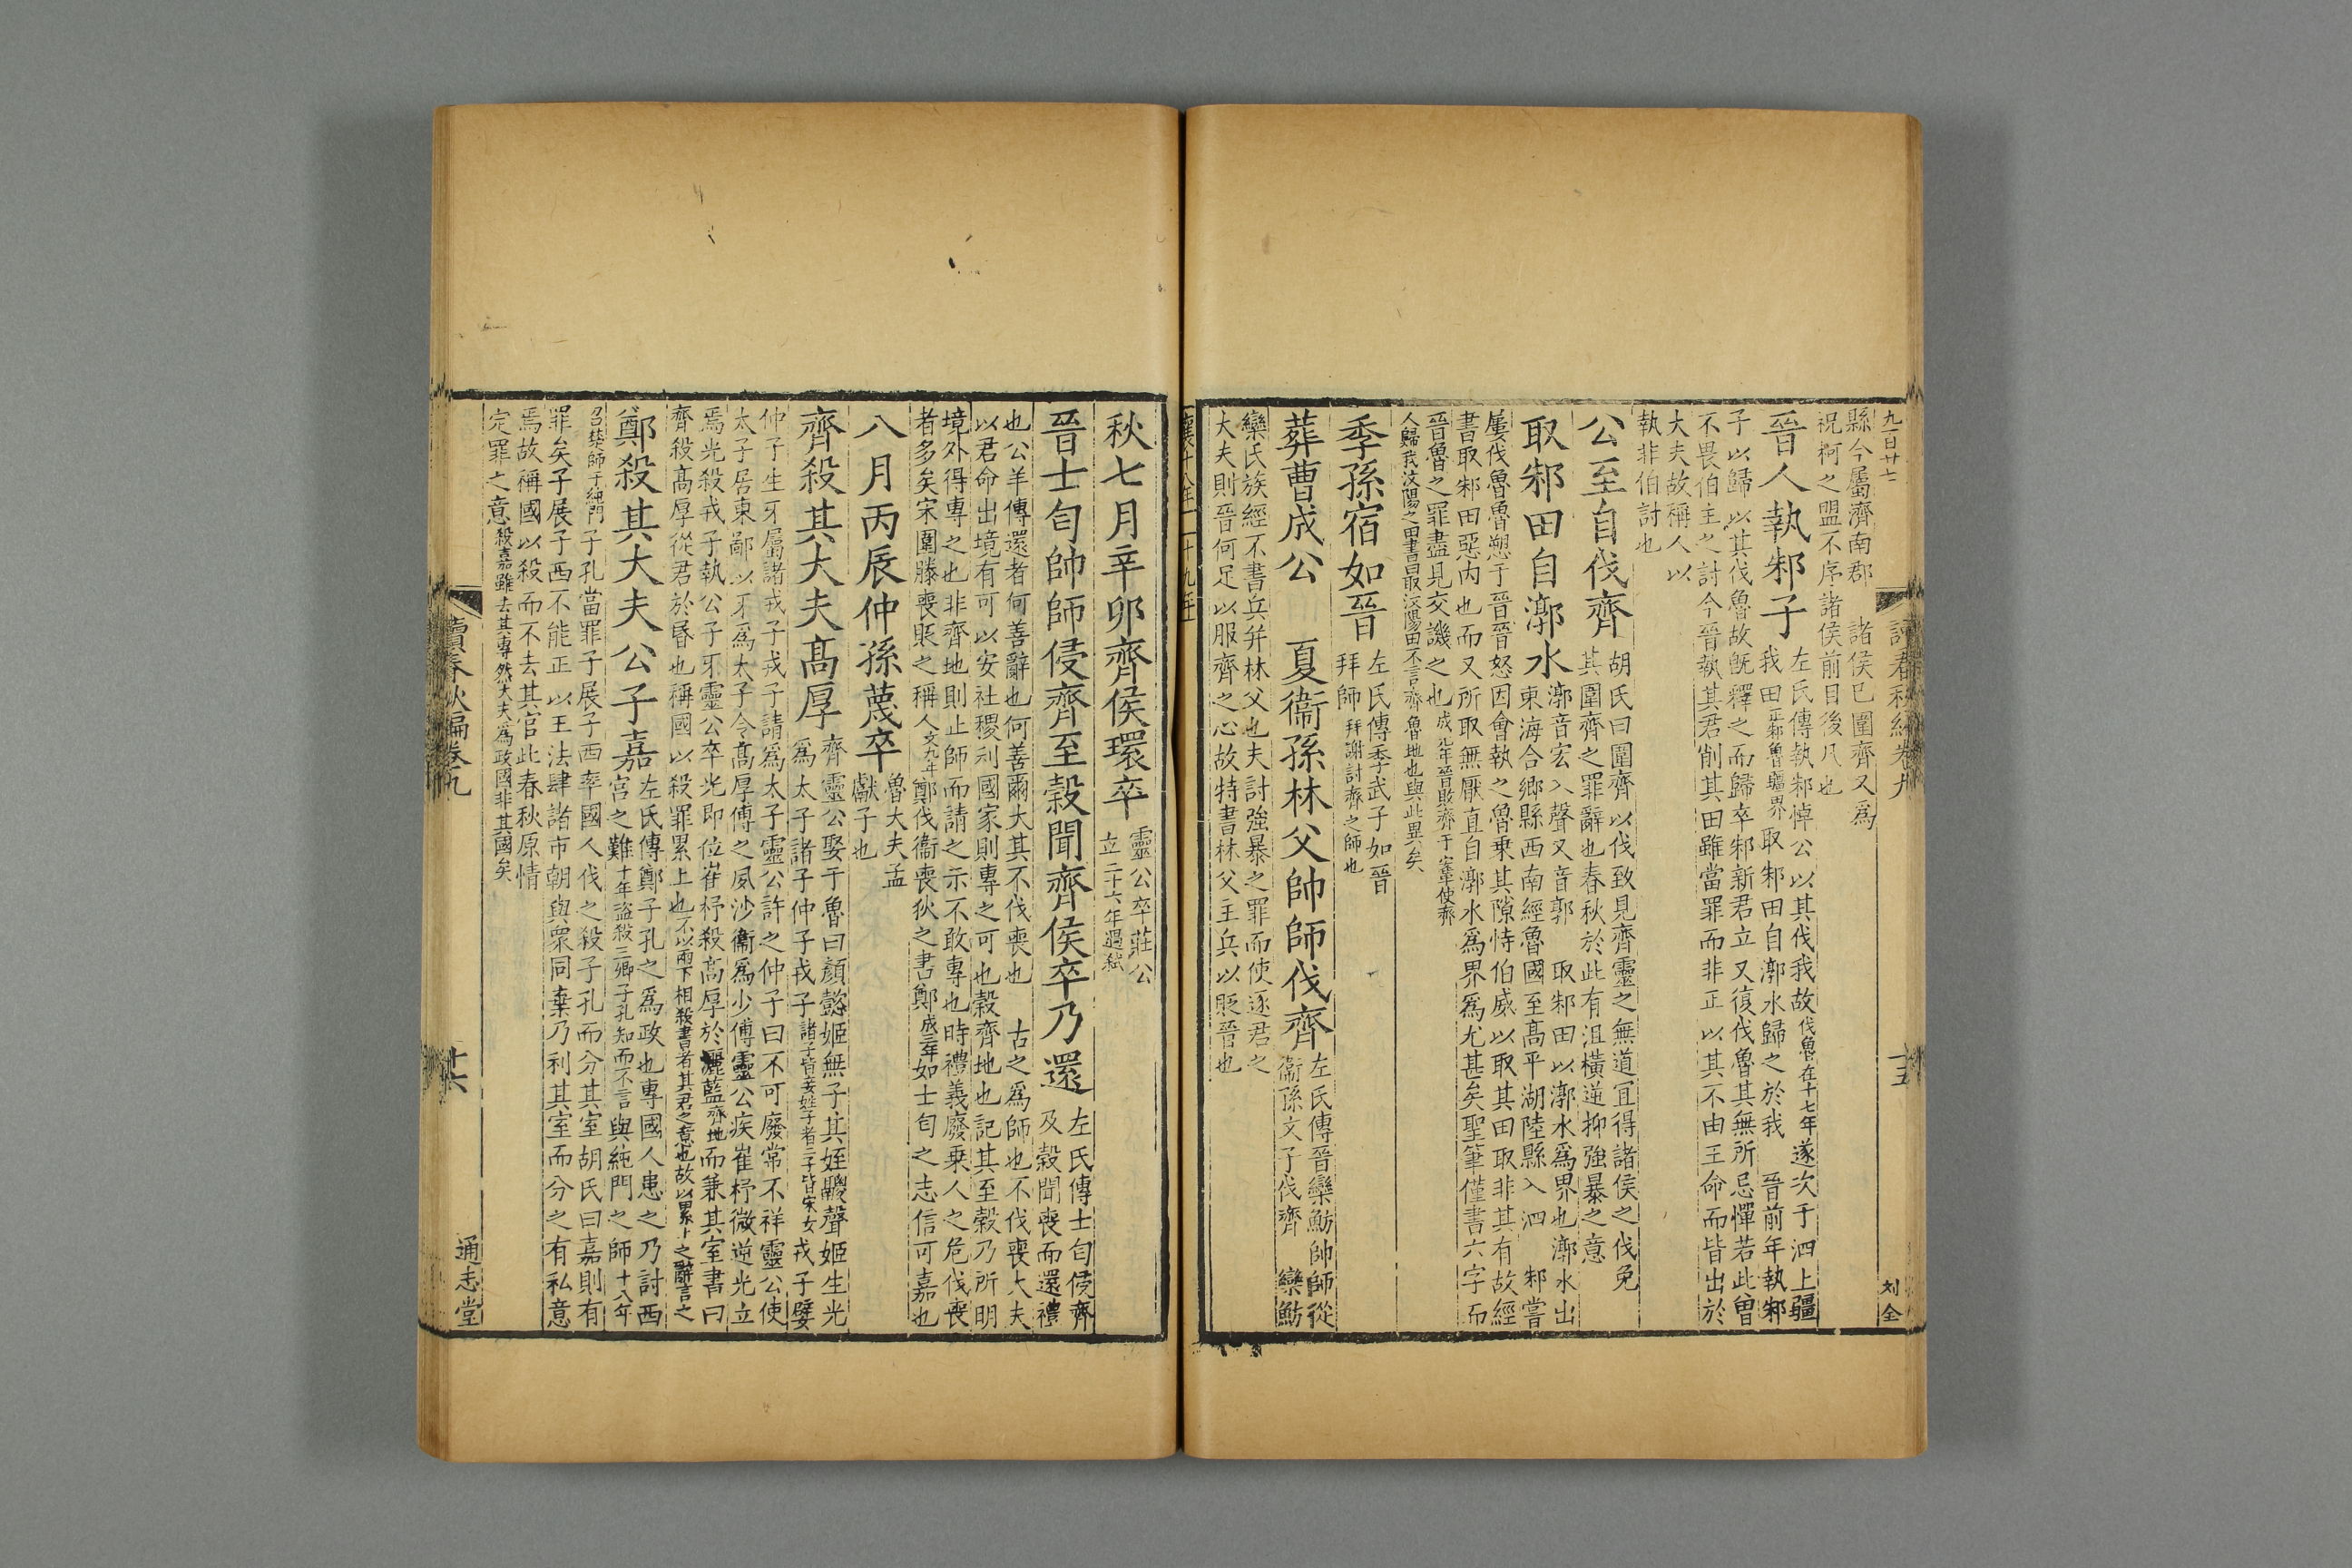 九百廿七
讀春秋編卷九
十五
刘全
縣今屬濟南郡　諸侯已圍齊又爲
祝柯之盟不序諸侯前目後凡也
晉人執邾子
左氏傳執邾悼公以其伐我故伐魯在十七年遂次于泗上疆
我田正邾魯疆界取邾田自漷水歸之於我　晉前年執邾
子以歸以其伐魯故旣釋之而歸卒邾新君立又復伐魯其無所忌憚若此曾
不畏伯主之討今晉執其君削其田雖當罪而非正以其不由王命而皆出於
大夫故稱人以
執非伯討也
公至自伐齊
胡氏曰圍齊以伐致見齊靈之無道宜得諸侯之伐免
其圍齊之罪辭也春秋於此有沮橫逆抑強暴之意
取邾田自漷水
漷音宏入聲又音郭　取邾田以漷水爲界也漷水出
東海合鄉縣西南經魯國至高平湖陸縣入泗　邾嘗
屢伐魯魯愬于晉晉怒因會執之魯乗其隙恃伯威以取其田取非其有故經
書取邾田惡内也而又所取無厭直自漷水爲界爲尤甚矣聖筆僅書六字而
晉魯之罪盡見交譏之也成二年晉敗齊于鞌使齊
人歸我汶陽之田書曰取汶陽田不言齊魯地也與此異矣
季孫宿如晉
左氏傳季武子如晉
拜師拜謝討齊之師也
葬曹成公　夏衞孫林父帥師伐齊
左氏傳晉欒魴帥師從
衞孫文子伐齊　欒魴
欒氏族經不書兵并林父也夫討強暴之罪而使逐君之
大夫則晉何足以服齊之心故特書林父主兵以貶晉也
襄十八年　十九年
秋七月辛卯齊侯環卒
靈公卒莊公
立二十六年遇弒
晉士匄帥師侵齊至穀聞齊侯卒乃還
左氏傳士匄侵齊
及穀聞喪而還禮
也公羊傳還者何善辭也何善爾大其不伐喪也　古之爲師也不伐喪大夫
以君命出境有可以安社稷利國家則專之可也穀齊地也記其至穀乃所明
境外得專之也非齊地則止師而請之示不敢專也時禮義廢乗人之危伐喪
者多矣宋圍滕喪貶之稱人文九年鄭伐衞喪狄之書鄭成三年如士匄之志信可嘉也
八月丙辰仲孫蔑卒
魯大夫孟
獻子也
齊殺其大夫髙厚
齊靈公娶于魯曰顏懿姬無子其姪鬷聲姬生光
爲太子諸子仲子戎子諸子皆妾姓子者二子皆宋女戎子嬖
仲子生牙屬諸戎子戎子請爲太子靈公許之仲子曰不可廢常不祥靈公使
太子居東鄙以牙爲太子令髙厚傅之夙沙衞爲少傅靈公疾崔杼微逆光立
焉光殺戎子執公子牙靈公卒光即位崔杼殺高厚於灑藍齊地而兼其室書曰
齊殺髙厚從君於昬也稱國以殺罪累上也不以兩下相殺書者其君之意也故以累上之辭言之
鄭殺其大夫公子嘉
左氏傳鄭子孔之爲政也專國人患之乃討西
宮之難十年盗殺三卿子孔知而不言與純門之師十八年
召楚師于純門子孔當罪子展子西率國人伐之殺子孔而分其室胡氏曰嘉則有
罪矣子展子西不能正以王法肆諸市朝與衆同棄乃利其室而分之有私意
焉故稱國以殺而不去其官此春秋原情
定罪之意殺嘉雖去其專然大夫爲政國非其國矣
讀春秋編卷九
十六
通志堂